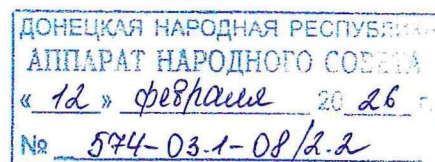 ДОНЕЦКАЯ НАРОДНАЯ РЕСПУБЛИКА
АППАРАТ НАРОДНОГО СОВЕТА
« 12 » февраля 20 26 г.
№ 574-03.1-08/2.2